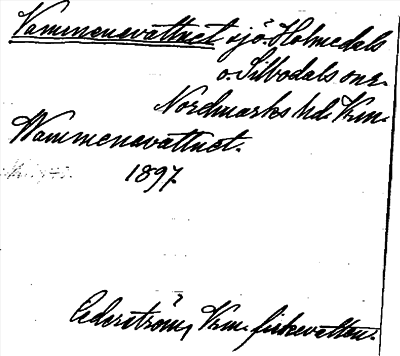 Vammenevattnet sjö. Holmedals
o. Silbodals snr.
Nordmarks hd. Vrm.
Wammenavattnet.
1897.
Cederström, Vrm. fiskevatten.